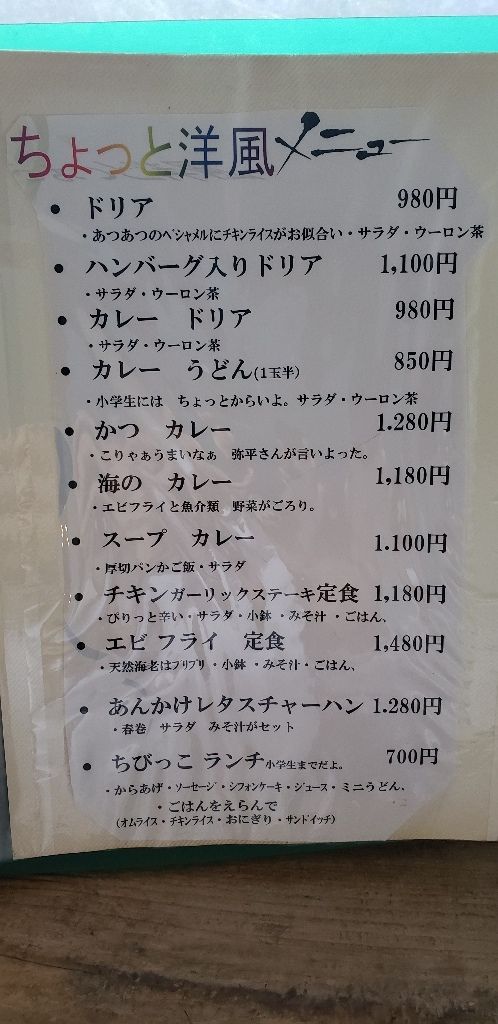 ちょっと洋風メニュー
• ドリア 980円
・あつあつのベシャメルにチキンライスがお似合い・サラダ・ウーロン茶
• ハンバーグ入りドリア 1,100円
・サラダ・ウーロン茶
• カレー ドリア 980円
・サラダ・ウーロン茶
• カレー うどん(1玉半) 850円
・小学生には ちょっとからいよ。サラダ・ウーロン茶
• かつ カレー 1.280円
・こりゃぁうまいなぁ 弥平さんが言いよった。
• 海の カレー 1,180円
・エビフライと魚介類 野菜がごろり。
• スープ カレー 1.100円
・厚切パンかご飯・サラダ
• チキンガーリックステーキ定食 1,180円
・ぴりっと辛い・サラダ・小鉢・みそ汁・ごはん、
• エビ フライ 定食 1,480円
・天然海老はプリプリ・小鉢・みそ汁・ごはん、
• あんかけレタスチャーハン 1.280円
・春巻 サラダ みそ汁がセット
• ちびっこ ランチ小学生までだよ。 700円
・からあげ・ソーセージ・シフォンケーキ・ジュース・ミニうどん、
・ごはんをえらんで
(オムライス・チキンライス・おにぎり・サンドイッチ)